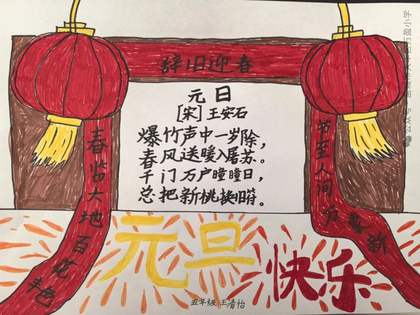 辞旧迎春
元日
[宋]王安石
爆竹声中一岁除，
春风送暖入屠苏。
千门万户瞳瞳日，
总把新桃换旧符。
春临大地百花艳
节至人间万象新
元旦
快乐
五年级 王清怡